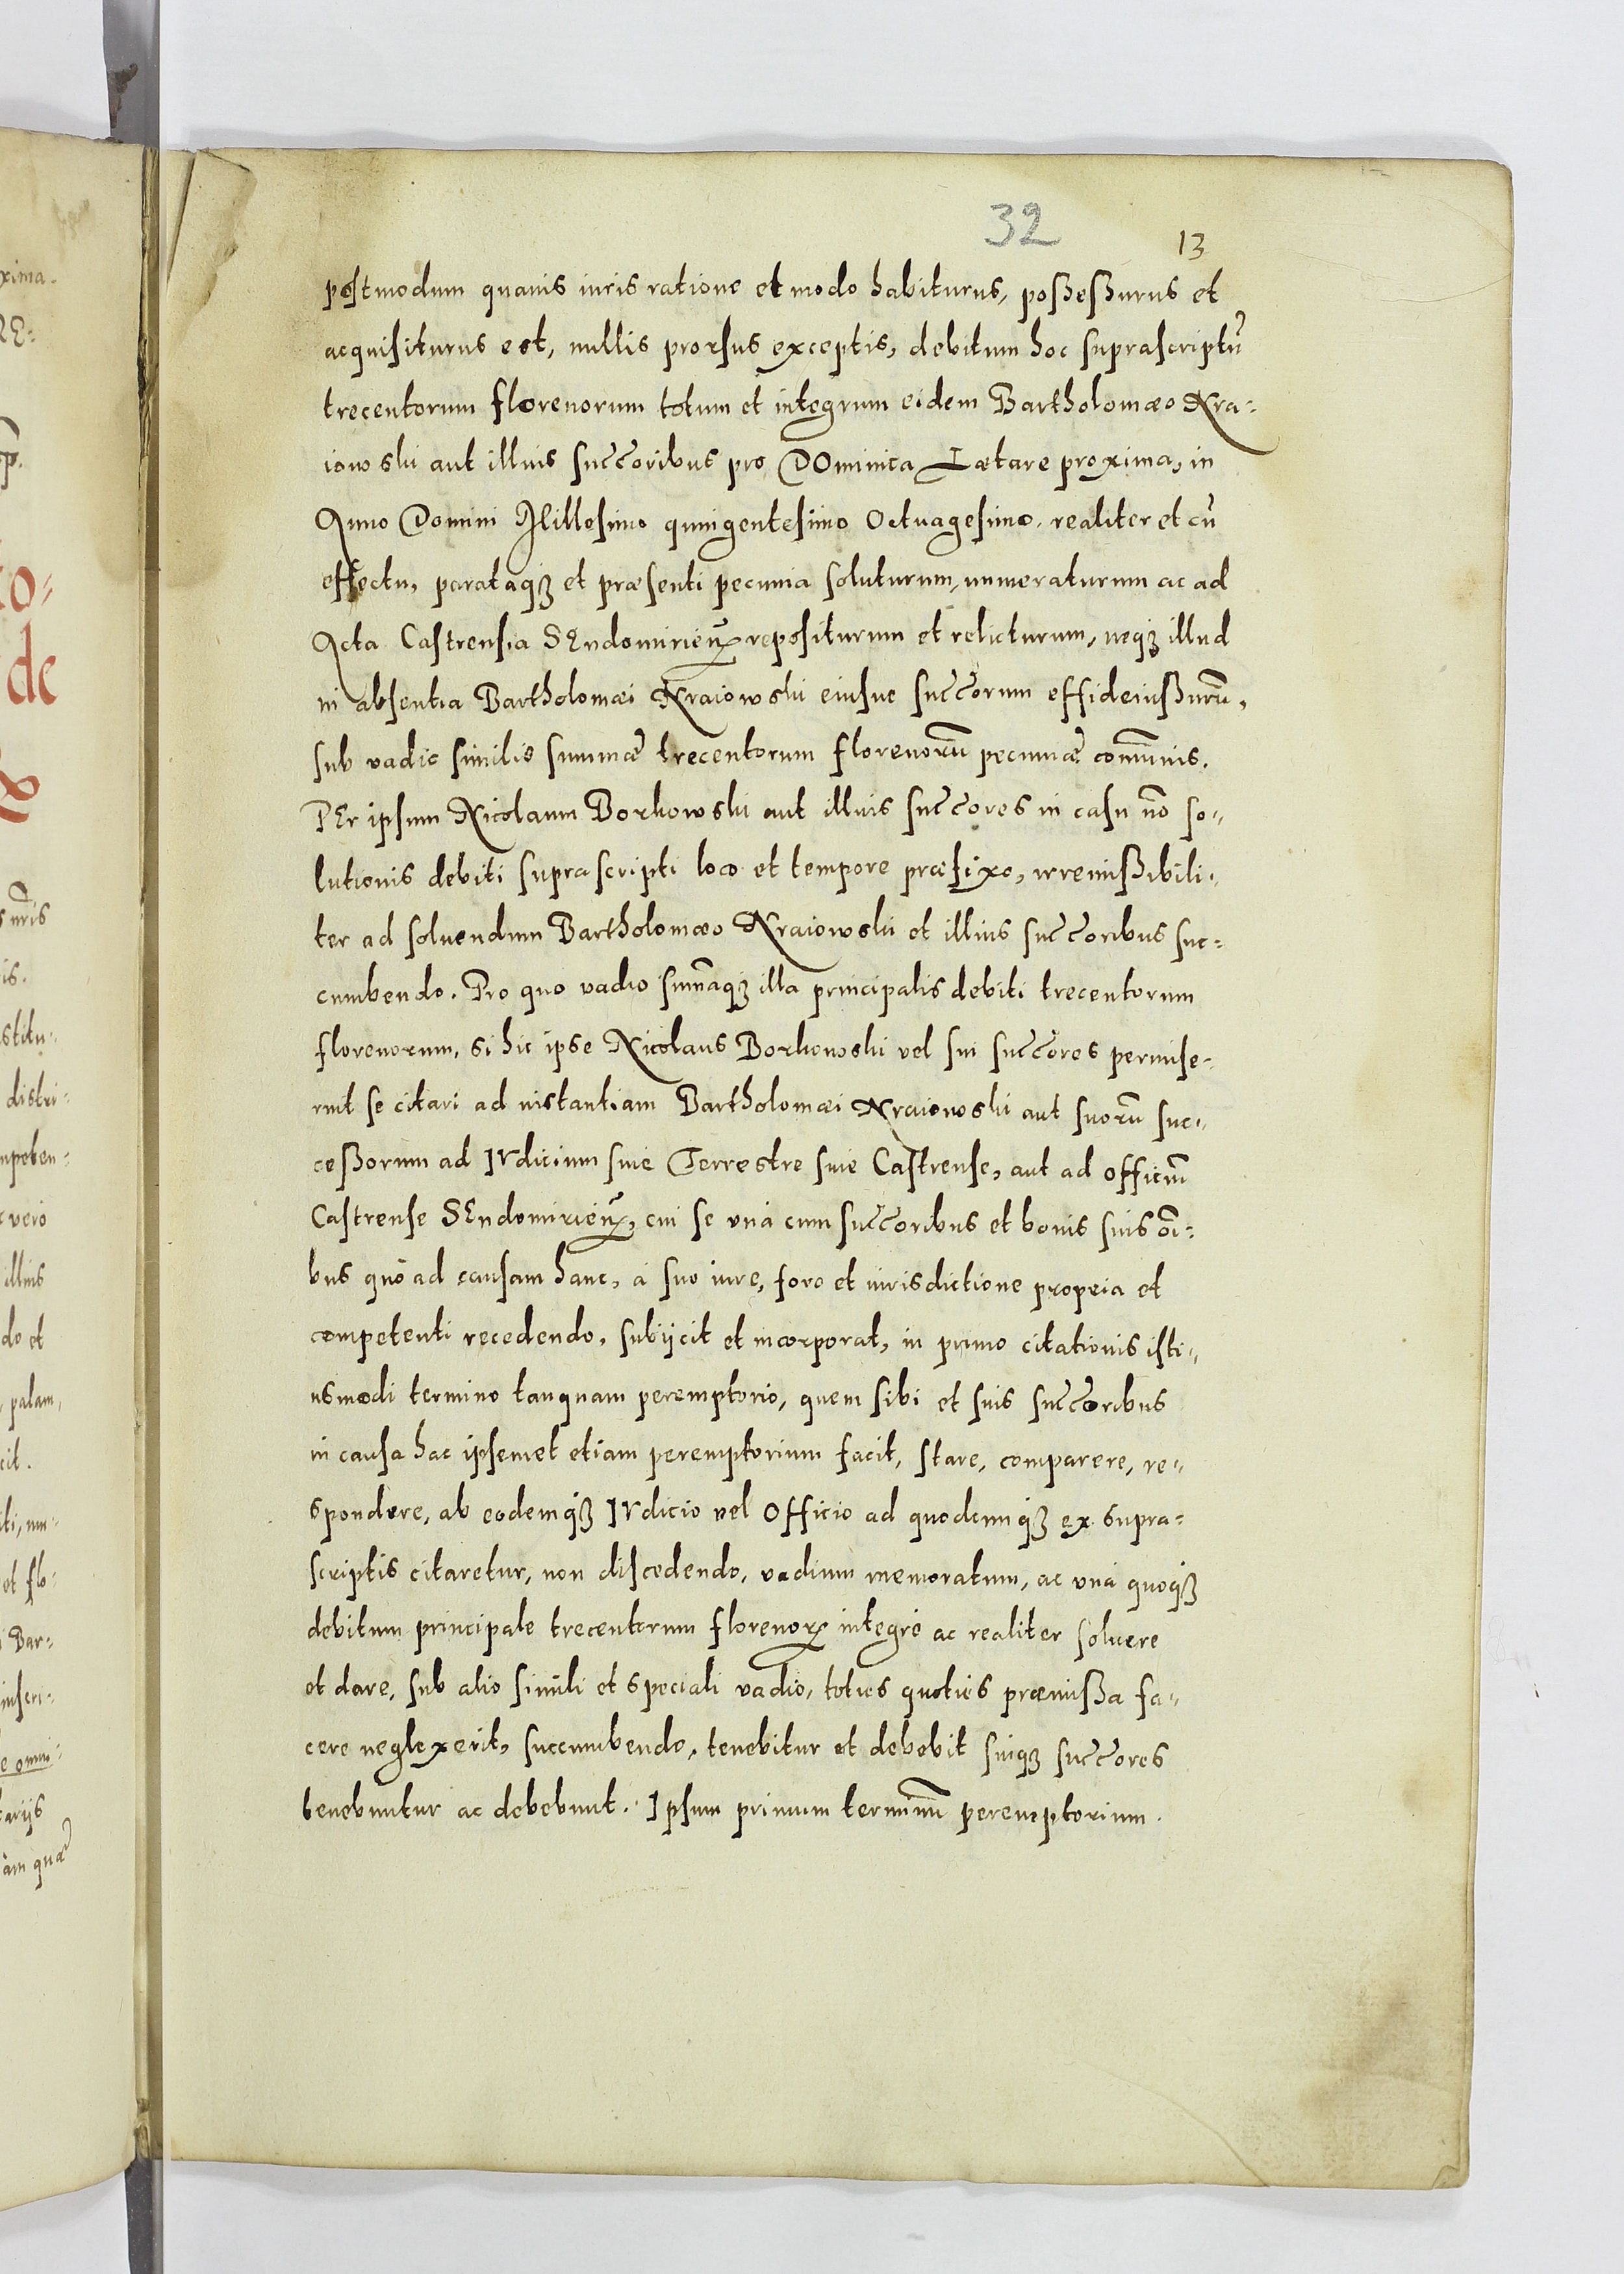 32
13
postmodum quauis iuris ratione et modo habiturus, poßeßurus et
acquisiturus est, nullis prorsus exceptis, debitum hoc suprascriptũ
trecentorum florenorum totum et integrum eidem Bartholomæo Kra=
iowski aut illius succ͠oribus pro DOminica Lætare proxima, in
Anno Domini Millesimo quingentesimo Octuagesimo, realiter et cũ
effectu, parataqꝫ et præsenti pecunia soluturum, numeraturum ac ad
Acta Castrensia SEndomirień repositurum et relicturum, neqꝫ illud
in absentia Bartholomæi Kraiowski eiusue succ͠orum effideiußurũ,
sub vadio similis summæ trecentorum florenorũ pecuniæ com̃unis.
PEr ipsum Nicolaum Borkowski aut illius succ͠ores in casu nõ so=
lutionis debiti suprascripti loco et tempore præfixo, irremißibili=
ter ad soluendum Bartholomæo Kraiowski et illius succ͠oribus suc=
cumbendo. Pro quo vadio sum̃aqꝫ illa principalis debiti trecentorum
florenorum, si hic ipse Nicolaus Borkowski vel sui succ͠ores permise=
rint se citari ad instantiam Bartholomæi Kraiowski aut suorũ suc=
ceßorum ad IVdicium siue Terrestre siue Castrense, aut ad officiũ
Castrense SEndomirień, cui se unà cum succ͠oribus et bonis suis oĩ=
bus quò ad causam hanc, à suo iure, foro et iurisdictione propria et
competenti recedendo, subijcit et incorporat, in primo citationis isti=
usmodi termino tanquam peremptorio, quem sibi et suis succ͠oribus
in causa hac ipsemet etiam peremptorium facit, stare, comparere, re=
spondere, ab eodemqꝫ IVdicio vel Officio ad quodcunqꝫ ex supra=
scriptis citaretur, non discedendo, vadium memoratum, ac unà quoqꝫ
debitum principale trecentorum florenorꝝ integrè ac realiter soluere
et dare, sub alio simili et speciali vadio, toties quoties præmißa fa=
cere neglexerit, succumbendo, tenebitur et debebit suiqꝫ succ͠ores
tenebuntur ac debebunt. Ipsum primum terminũ peremptorium.